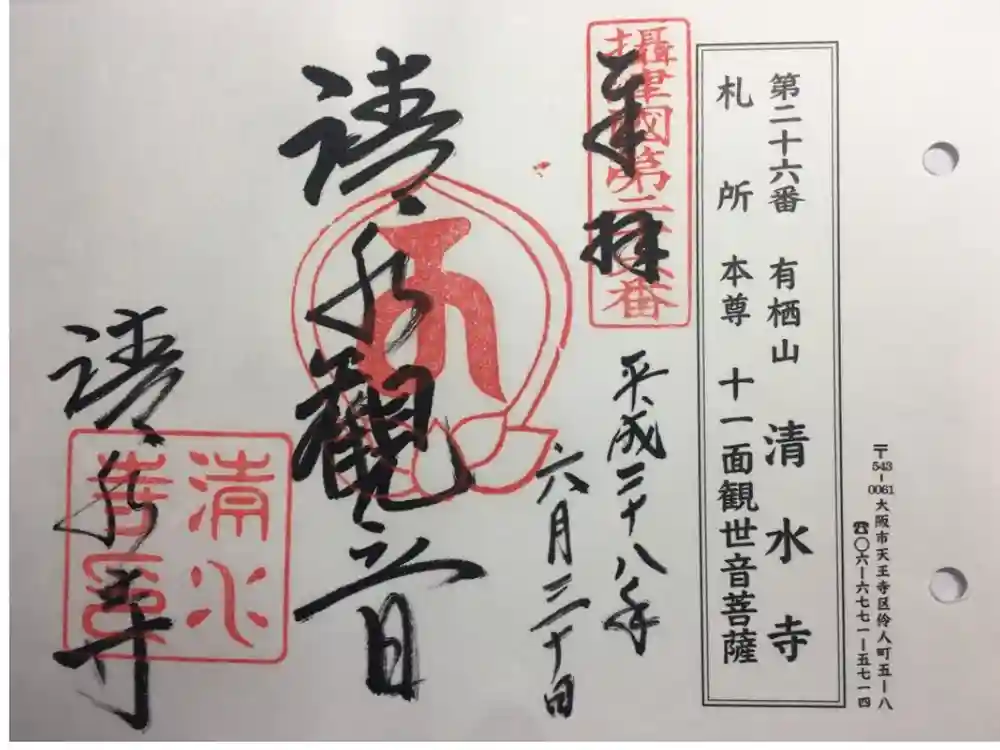 〒543-0061大阪市天王寺区伶人町五ー八
☎〇六ー六七七一ー五七一四
第二十六番 有栖山 清水寺
札所 本尊 十一面観世音菩薩
攝津國第二十六番
奉拝
平成二十八年
六月三十日
清水観音
清水寺
清水寺印